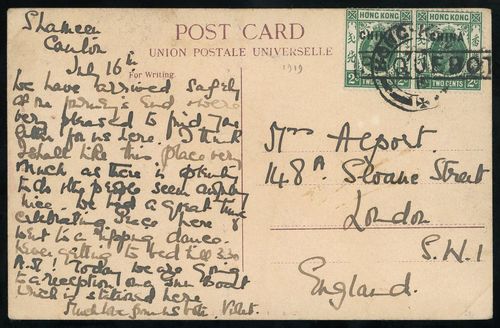 Shameen
Canton
July 16th
POST CARD
UNION POSTALE UNIVERSELLE
For Writing.
1919
HONG KONG HONG KONG
CHINA CHINA
2c TWO CENTS TWO CENTS 2c
We have arrived safely
at the journey's End & were
very pleased to find your
letter for us here. I think
I shall like this place very
much as there is plenty
to do & the people seem awfully
nice. We had a great time
celebrating Peace here &
went to a ripping dance.
Never getting to bed till 3.30
A.M.! Today we are going
to a reception on a Gun Boat
which is stationed here
Much love from us both. Violet.
Mrs Alport.
148A Sloane Street
London
S.W.1
England.